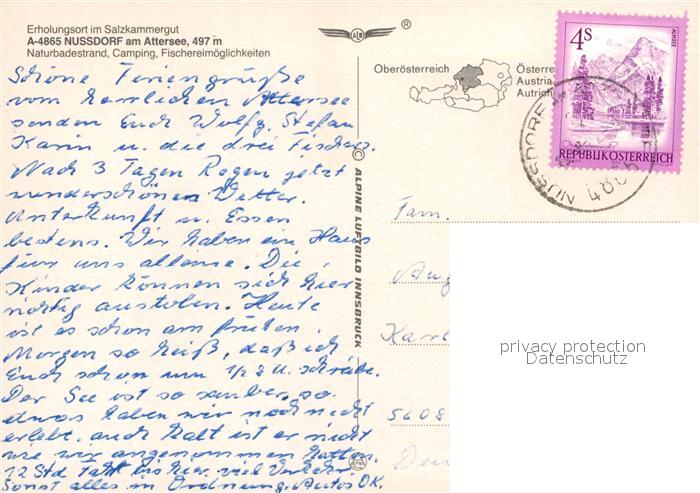 Erholungsort im Salzkammergut
A-4865 NUSSDORF am Attersee, 497 m
Naturbadestrand, Camping, Fischereimöglichkeiten
Schöne Feriengrüße
vom herrlichen Attersee
senden Euch Wolfg. Stefan
Karin u. die drei Fischers.
Nach 3 Tagen Regen jetzt
wunderschönes Wetter.
Unterkunft u. Essen
bestens. Wir haben ein Haus
für uns alleine. Die
Kinder können sich hier
richtig austoben. Heute
ist es schon am frühen
Morgen so heiß, daß ich
Euch schon um 1/2 8 U. schreibe.
Der See ist so sauber, so
etwas haben wir noch nicht
erlebt. auch kalt ist er nicht
wie wir angenommen hatten.
12 Std Fahrt bis hier. viel Verkehr
Sonst alles in Ordnung. Autos OK.
®
Oberösterreich
Österre
Austria
Autrich
© ALPINE LUFTBILD INNSBRUCK
4S
ALMSEE
REPUBLIK ÖSTERREICH
NUSSDORF
4865
Fam.
Aug
Karl
5608
privacy protection
Datenschutz